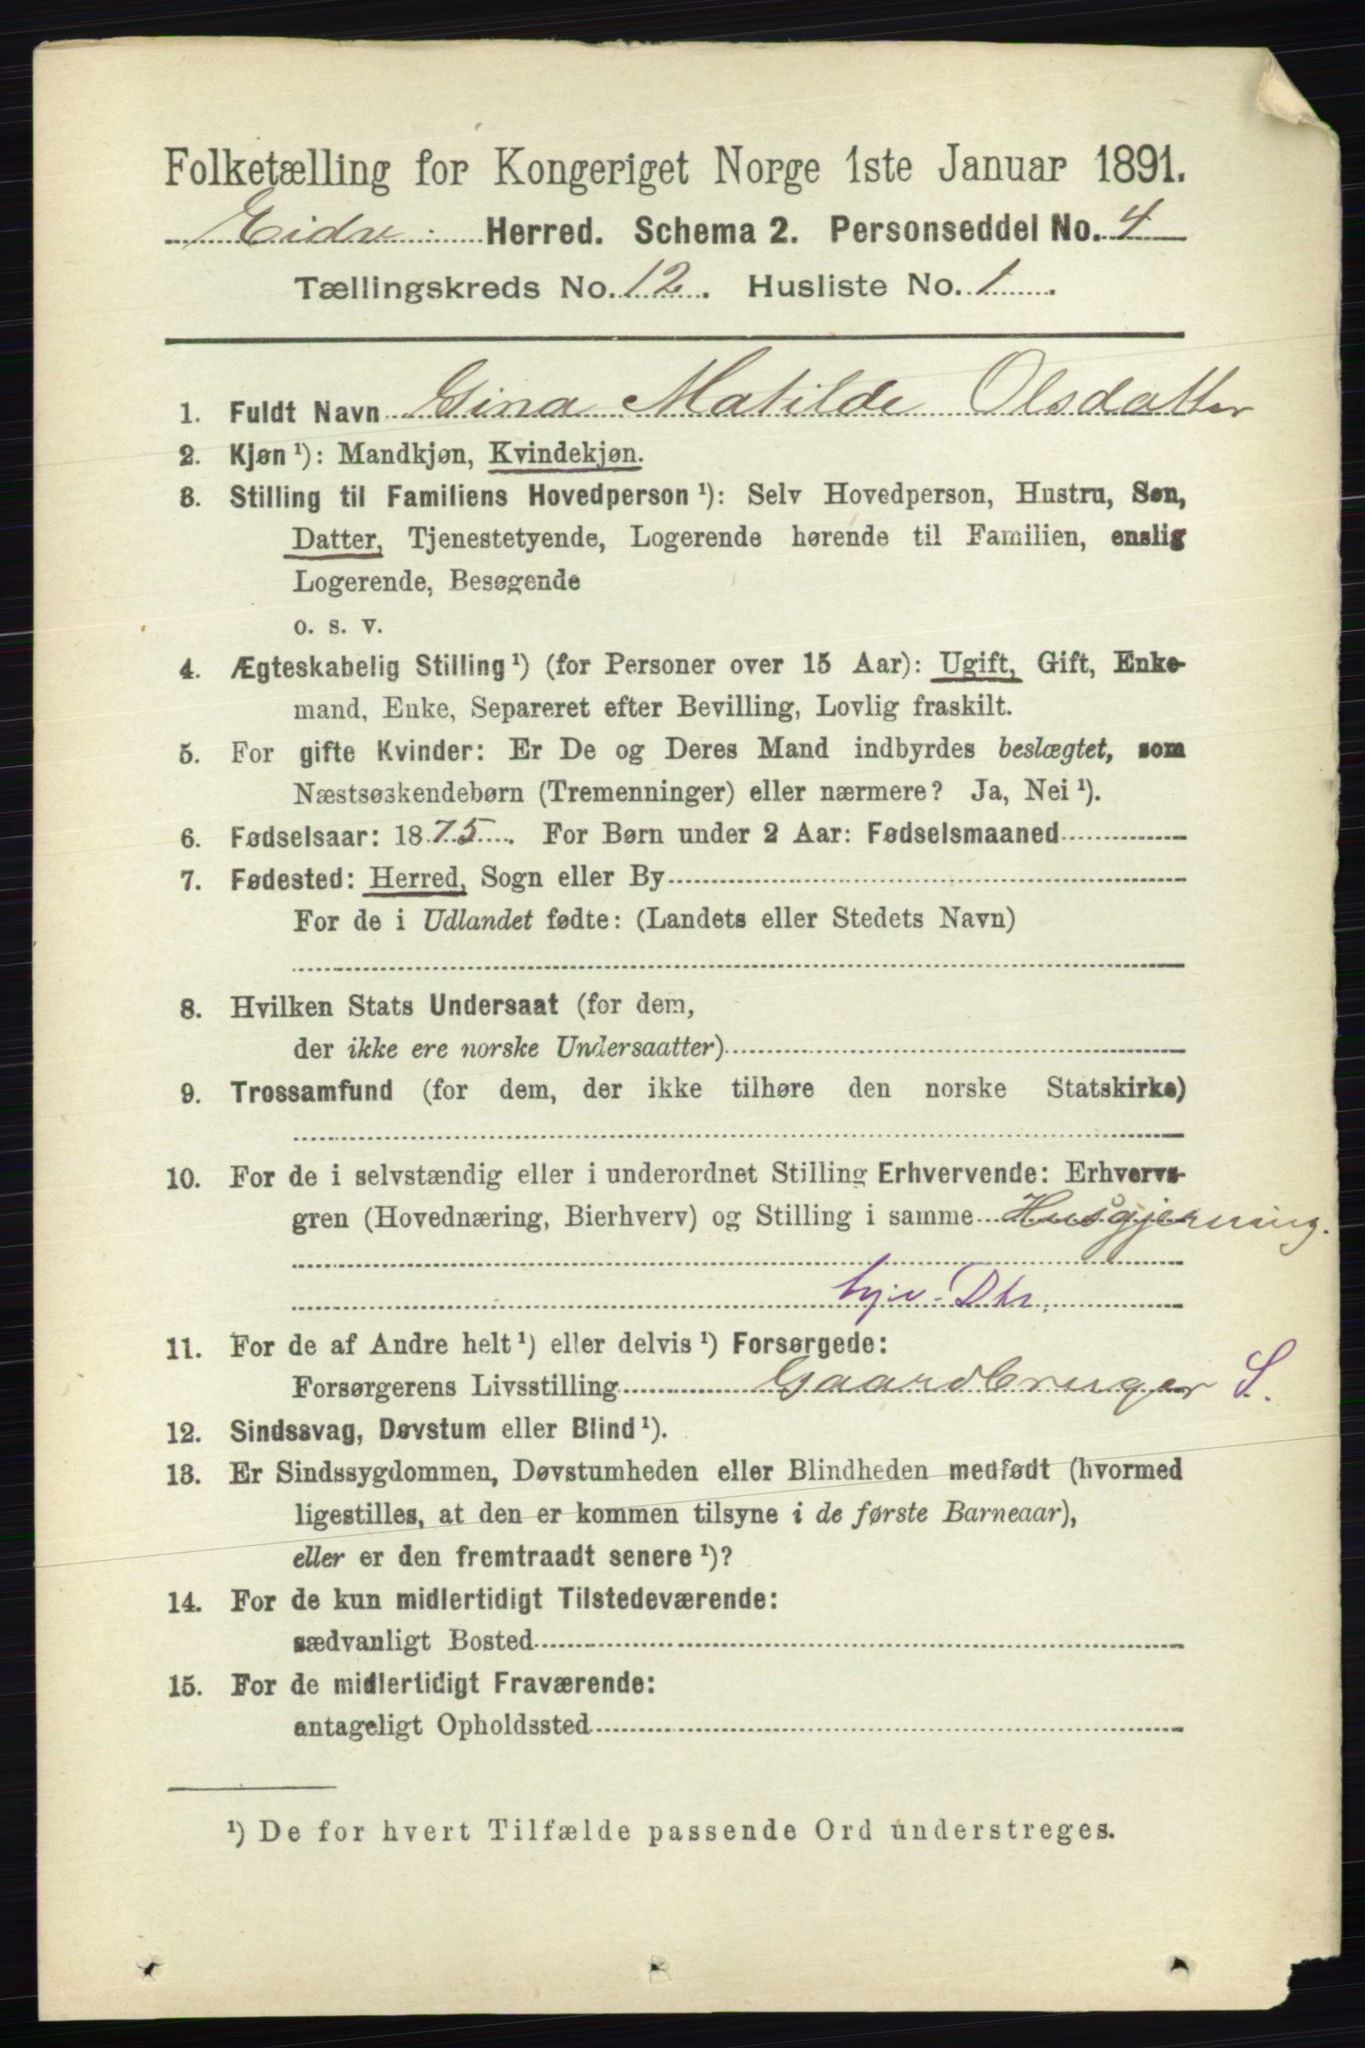 Folketælling for Kongeriget Norge 1ste Januar 1891.
Herred. Schema 2. Personseddel No. 4
Tællingskreds No. 12. Husliste No. 1.
1. Fuldt Navn Gina Matilde Olsdatter
2. Kjøn ¹): Mandkjøn, Kvindekjøn.
3. Stilling til Familiens Hovedperson ¹): Selv Hovedperson, Hustru, Søn,
Datter, Tjenestetyende, Logerende hørende til Familien, enslig
Logerende, Besøgende
o. s. v.
4. Ægteskabelig Stilling ¹) (for Personer over 15 Aar): Ugift, Gift, Enke-
mand, Enke, Separeret efter Bevilling, Lovlig fraskilt.
5. For gifte Kvinder: Er De og Deres Mand indbyrdes beslægtet, som
Næstsøskendebørn (Tremenninger) eller nærmere? Ja, Nei ¹).
6. Fødselsaar: 1875. For Børn under 2 Aar: Fødselsmaaned
7. Fødested: Herred, Sogn eller By
For de i Udlandet fødte: (Landets eller Stedets Navn)
8. Hvilken Stats Undersaat (for dem,
der ikke ere norske Undersaatter)
9. Trossamfund (for dem, der ikke tilhøre den norske Statskirke)
10. For de i selvstændig eller i underordnet Stilling Erhvervende: Erhvervs-
gren (Hovednæring, Bierhverv) og Stilling i samme Husgjerning.
Dtr.
11. For de af Andre helt ¹) eller delvis ¹) Forsørgede:
Forsørgerens Livsstilling Gaardbruger S.
12. Sindssvag, Døvstum eller Blind ¹).
13. Er Sindssygdommen, Døvstumheden eller Blindheden medfødt (hvormed
ligestilles, at den er kommen tilsyne i de første Barneaar),
eller er den fremtraadt senere ¹)?
14. For de kun midlertidigt Tilstedeværende:
sædvanligt Bosted
15. For de midlertidigt Fraværende:
antageligt Opholdssted
¹) De for hvert Tilfælde passende Ord understreges.